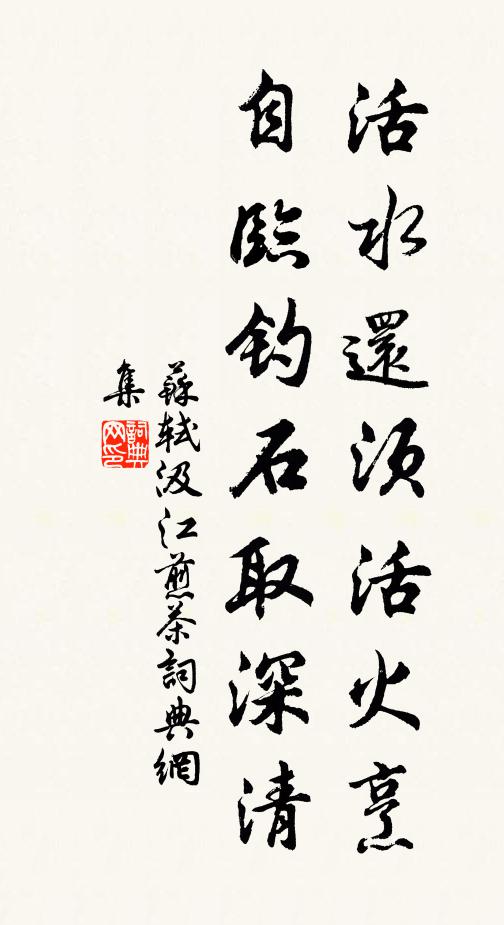 活水還須活火烹
自臨釣石取深清
蘇軾汲江煎茶詞典網
集
詞典
网印